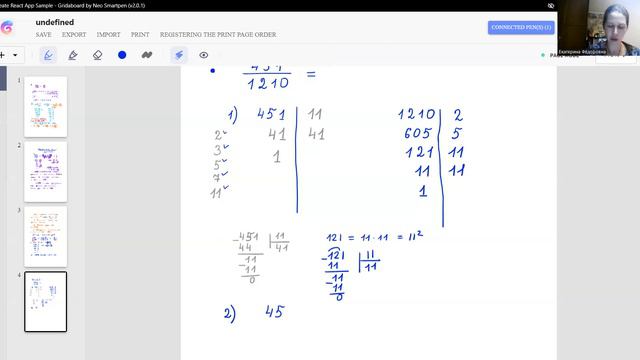 eate React App Sample - Gridaboard by Neo Smartpen (v2.0.1)
undefined
SAVE EXPORT IMPORT PRINT REGISTERING THE PRINT PAGE ORDER
CONNECTED PEN(S) (1)
Екатерина Фёдоровна
1
2
3
4
451
1210 =
1) 451 | 11
2 41 | 41
3 1
5
7
11
1210 | 2
605 | 5
121 | 11
11 | 11
1
-451 | 11
44 41
11
-11
0
121 = 11 · 11 = 11²
-121 | 11
11 11
11
-11
0
2) 45